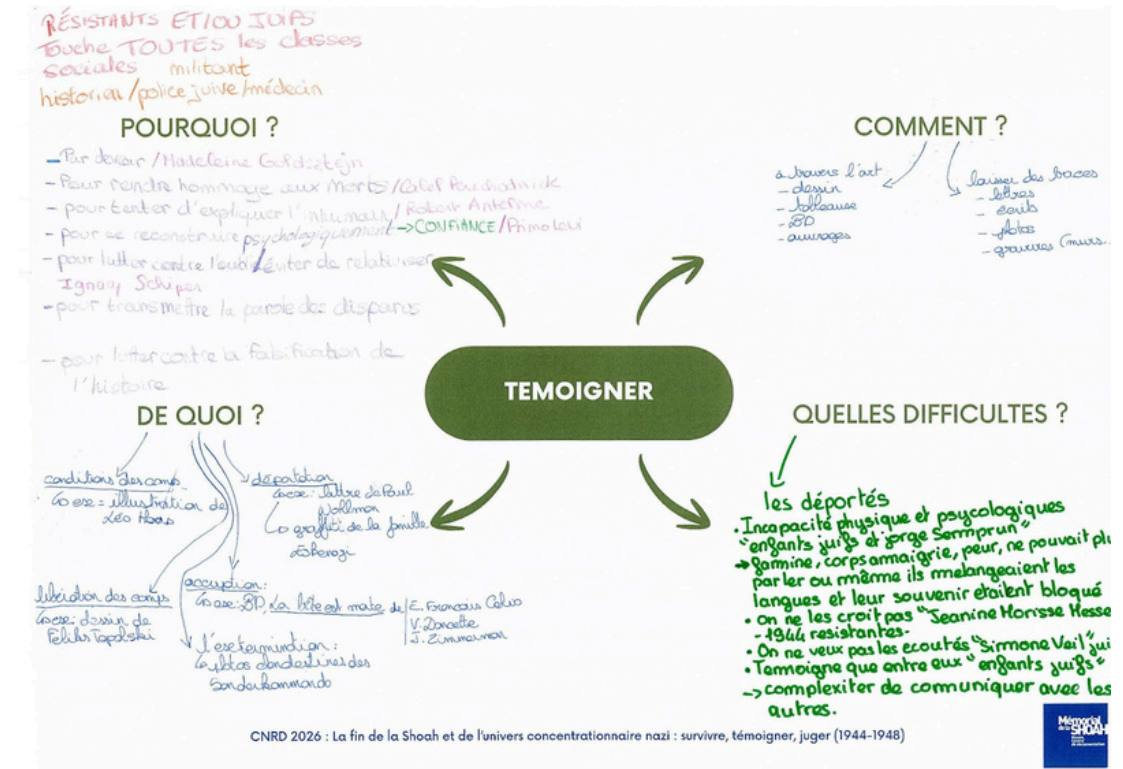 RÉSISTANTS ET/OU JUIFS
Touche TOUTES les classes
sociales militant
historien/police juive/médecin
POURQUOI ?
- Par devoir / Madeleine Goldsztejn
- Pour rendre hommage aux Morts /
- pour tenter d'expliquer l'inhumain / Robert Antelme
- pour se reconstruire psychologiquement → CONFIANCE / Primo Levi
- pour lutter contre l'oubli / éviter de relativiser
Ignacy Schiper
- pour transmettre la parole des disparus
- pour lutter contre la falsification de
l'histoire
COMMENT ?
à travers l'art
- dessin
- tableause
- BD
- ouvrages
laisser des traces
- lettres
- écrits
- photos
- gravures (murs...
TEMOIGNER
DE QUOI ?
conditions des camps
↳ exe = illustration de
Léo Haas
déportation
↳ exe: lettre de Paul
↳ graffiti de la famille
libération des camps
↳ exe: dessin de
Feliks Topolski
occuption:
↳ exe: BD, La bête est morte de
E. Francois Calvo
V. Dancette
J. Zimmermon
l'extermindion:
↳ photos clandestines des
Sonderkommando
QUELLES DIFFICULTES ?
les déportés
• Incapacité physique et psycologiques
"enfants juifs et jorge Sermprun"
→ famine, corps amaigrie, peur, ne pouvait plu
parler ou même ils melangeaient les
langues et leur souvenir etaient bloqué
• on ne les croit pas "Jeanine Morisse Messe
- 1944 resistantes.
• On ne veux pas les ecoutés "Sirmone Veil" jui
• Temmoigne que entre eux "enfants juifs"
-> complexiter de communiquer avec les
autres.
CNRD 2026 : La fin de la Shoah et de l'univers concentrationnaire nazi : survivre, témoigner, juger (1944-1948)
Mémorial
de la SHOAH